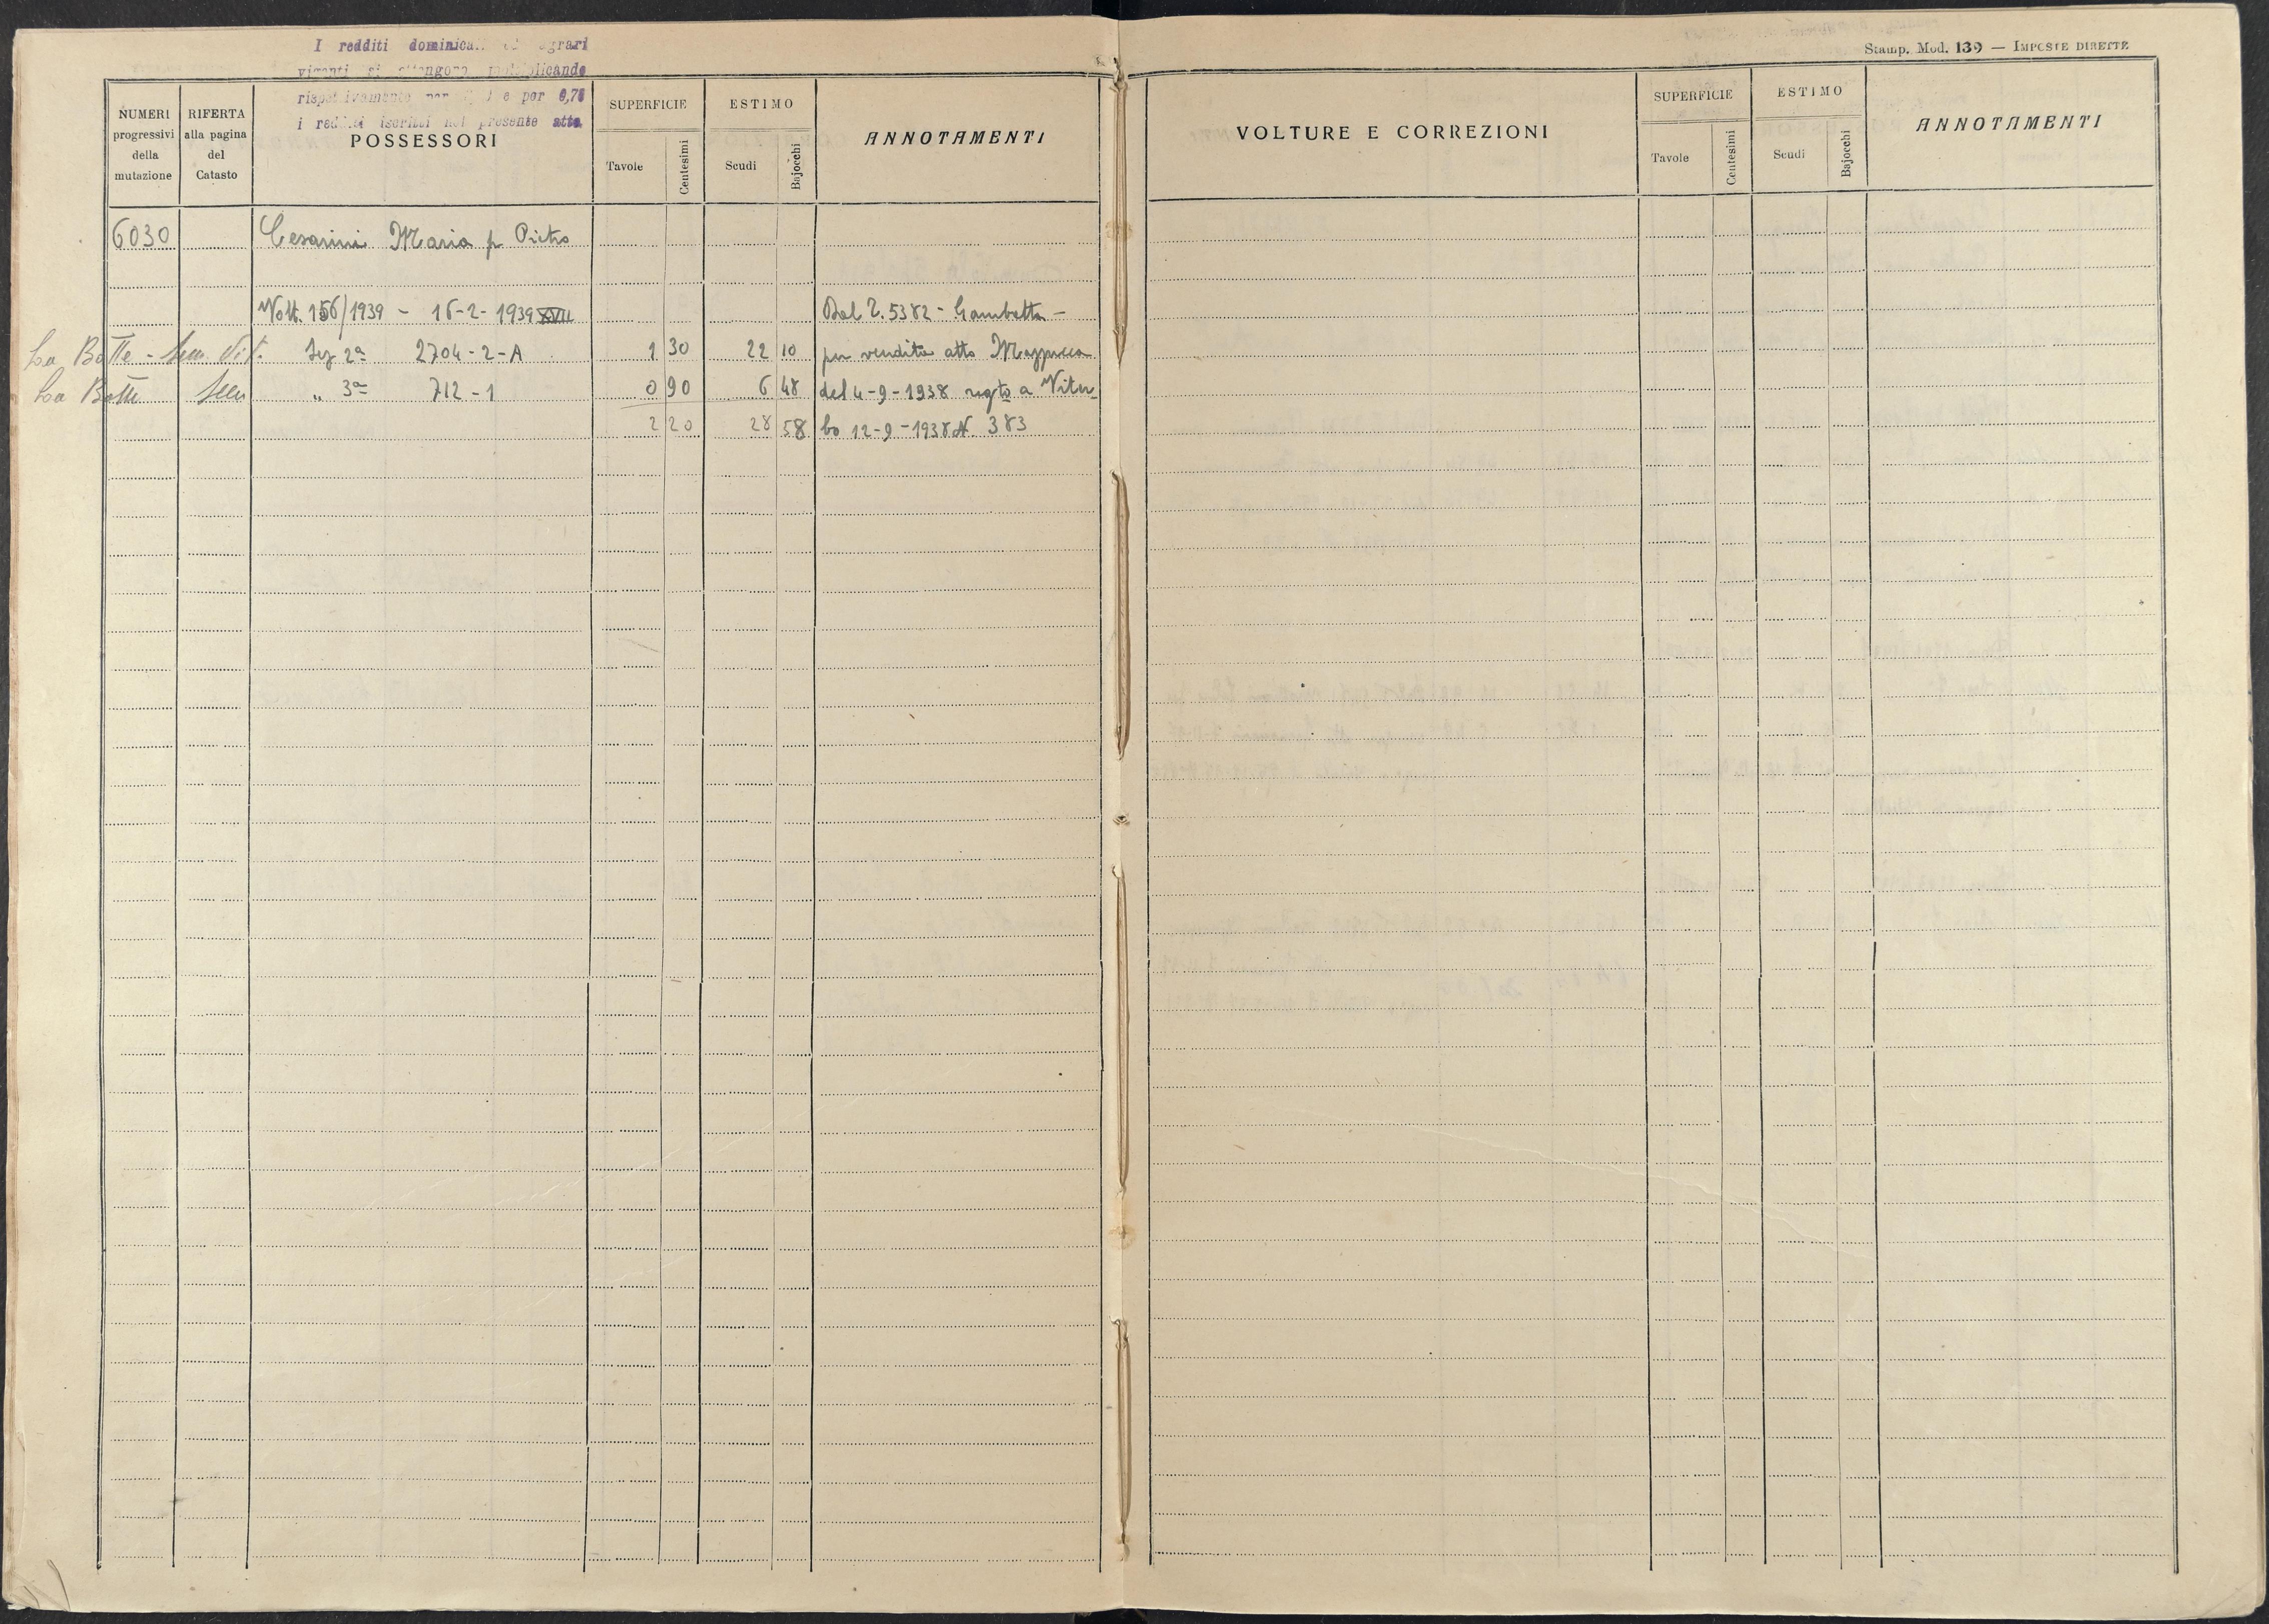 I redditi agrari
rispettivamente per e per 0,78
i redditi iscritti nel presente atto.
Stamp. Mod. 139 — IMPOSTE DIRETTE
NUMERI progressivi della mutazione
RIFERTA alla pagina del Catasto
POSSESSORI
SUPERFICIE
Tavole Centesimi
ESTIMO
Scudi Bajocchi
ANNOTAMENTI
VOLTURE E CORREZIONI
SUPERFICIE
Tavole Centesimi
ESTIMO
Scudi Bajocchi
ANNOTAMENTI
6030 Cesarini Maria fu Pietro
Volt. 156/1939 - 16-2-1939 XVII Dal 5382 - Gambetta -
La Botte - Sem. Vit. Sez 2a 2704-2-A 1 30 22 10 per vendita atto
La Botte Sem " 3a 712-1 0 90 6 48 del 4-9-1938 regto a Viter-
2 20 28 58 bo 12-9-1938 N. 383